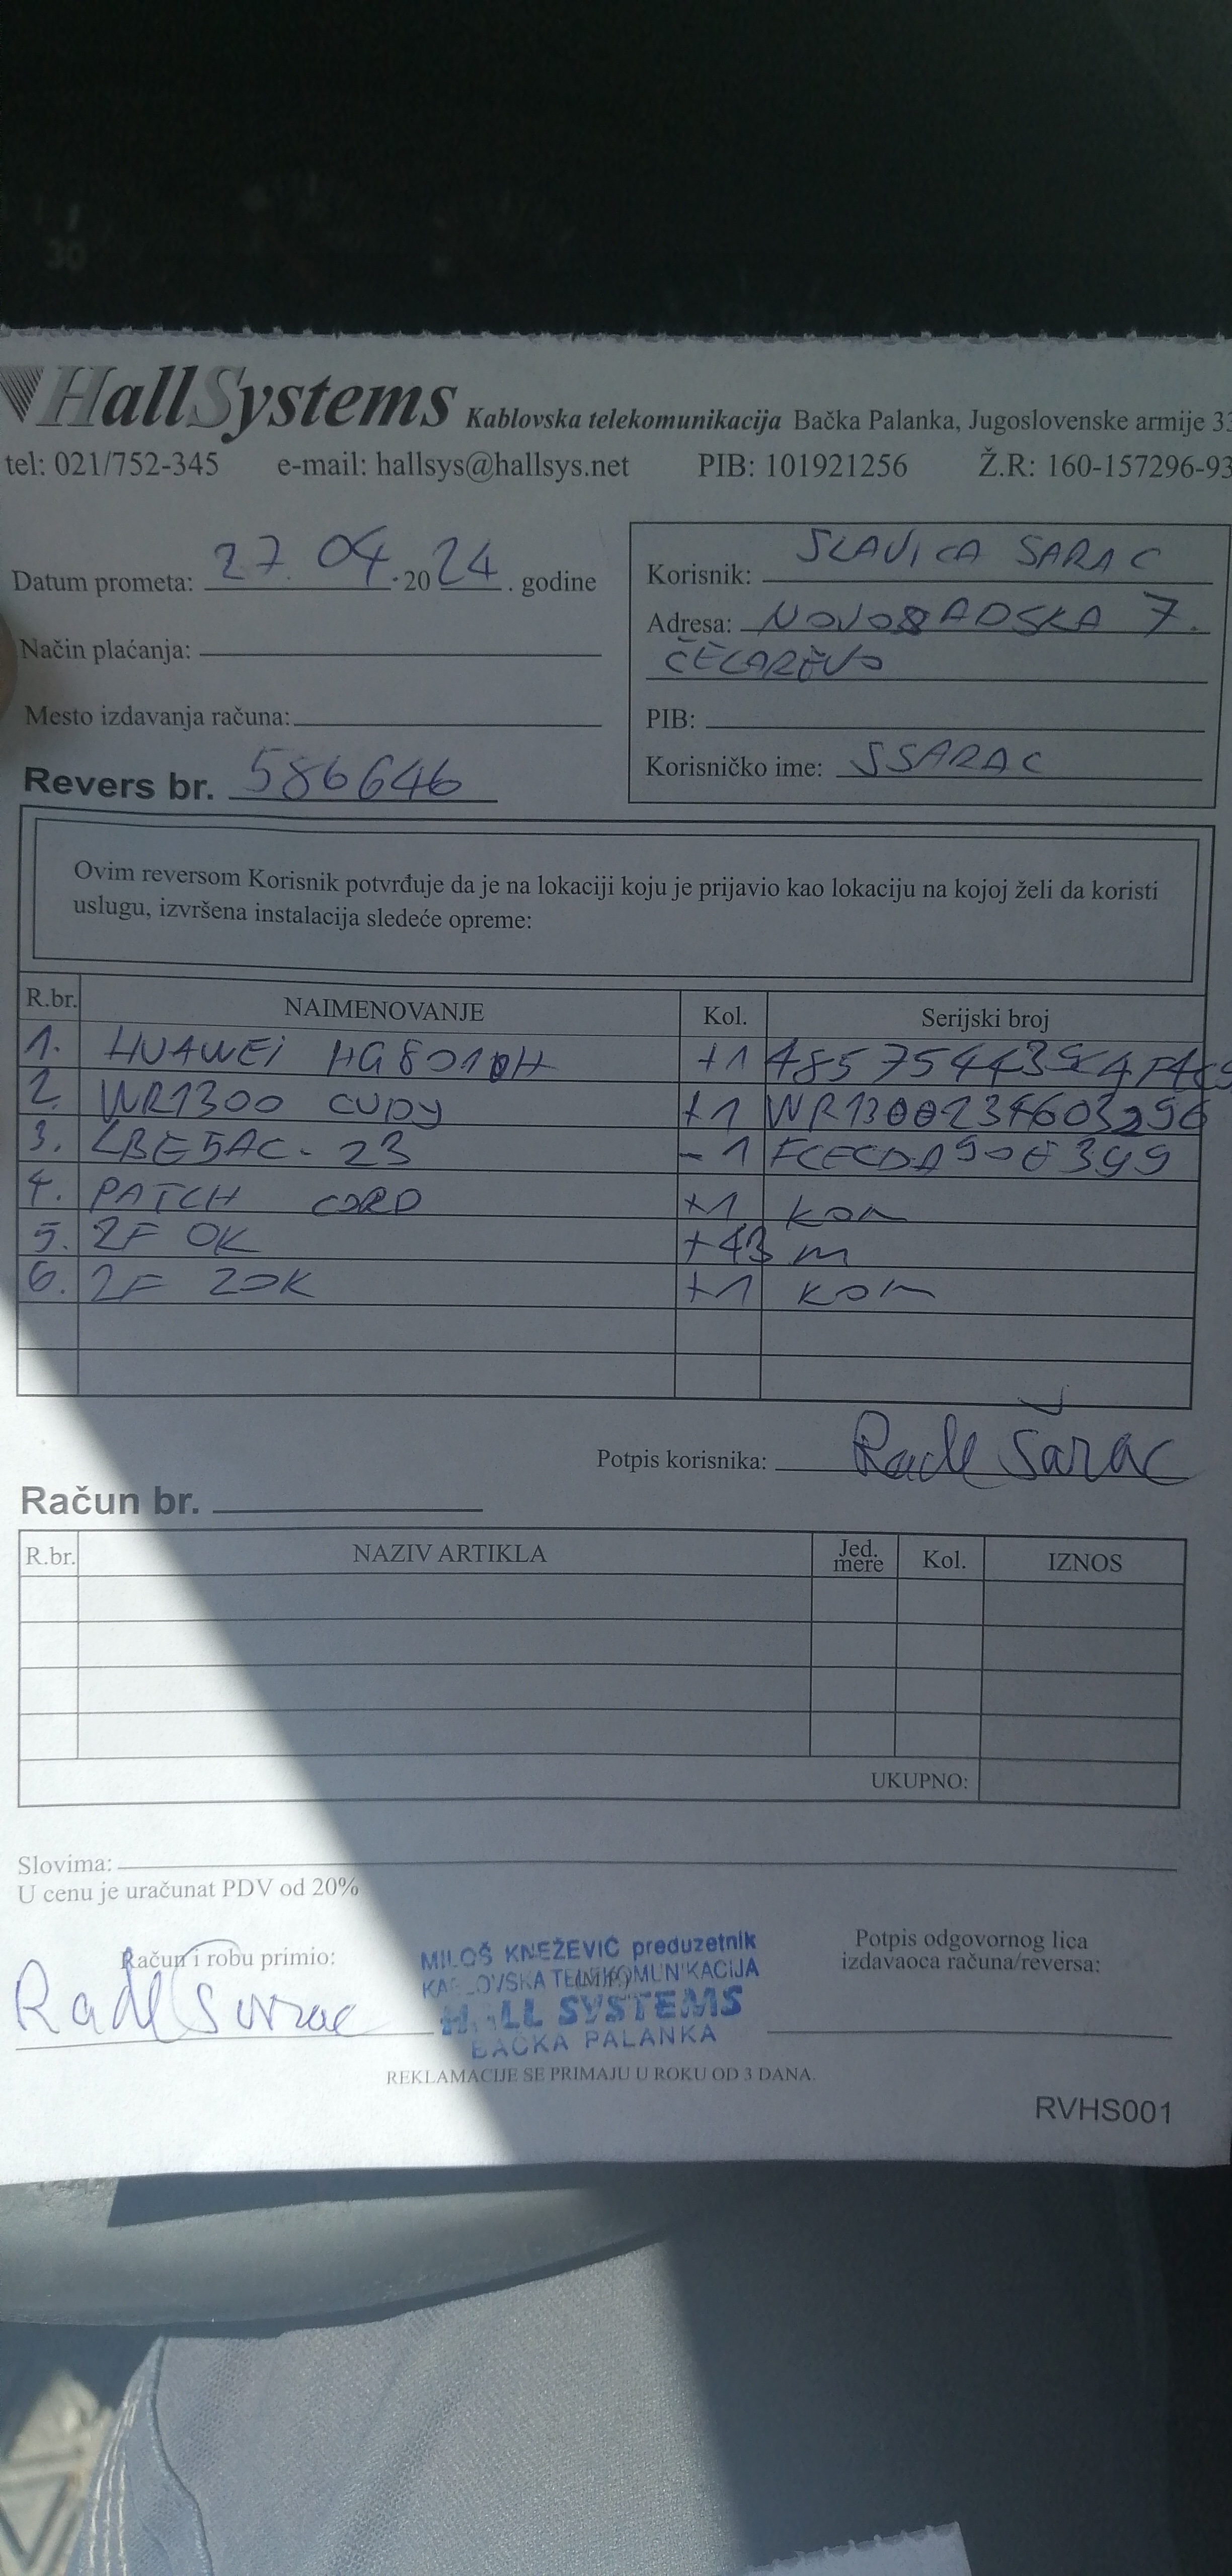 HallSystems Kablovska telekomunikacija Bačka Palanka, Jugoslovenske armije 33
tel: 021/752-345 e-mail: hallsys@hallsys.net PIB: 101921256 Ž.R: 160-157296-93
Datum prometa: 27.04.2024. godine
Način plaćanja:
Mesto izdavanja računa:
Revers br. 586646
Korisnik: SLAVICA SARAC
Adresa: NOVOSADSKA 7.
ČELAREVO
PIB:
Korisničko ime: SSARAC
Ovim reversom Korisnik potvrđuje da je na lokaciji koju je prijavio kao lokaciju na kojoj želi da koristi
uslugu, izvršena instalacija sledeće opreme:
R.br. NAIMENOVANJE Kol. Serijski broj
1. HUAWEi HG8010H +1
2. WR1300 CUDY +1
3. LBE5AC-23 -1
4. PATCH CORD +1 kom
5. 2F OK +43 m
6. 2F ZOK +1 kom
Potpis korisnika: Rade Šarac
Račun br.
R.br. NAZIV ARTIKLA Jed. mere Kol. IZNOS
UKUPNO:
Slovima:
U cenu je uračunat PDV od 20%
Račun i robu primio:
Rade Sarac
MILOŠ KNEŽEVIĆ preduzetnik
KABLOVSKA TELEKOMUNIKACIJA
(M.P.)
HALL SYSTEMS
BAČKA PALANKA
Potpis odgovornog lica
izdavaoca računa/reversa:
REKLAMACIJE SE PRIMAJU U ROKU OD 3 DANA.
RVHS001